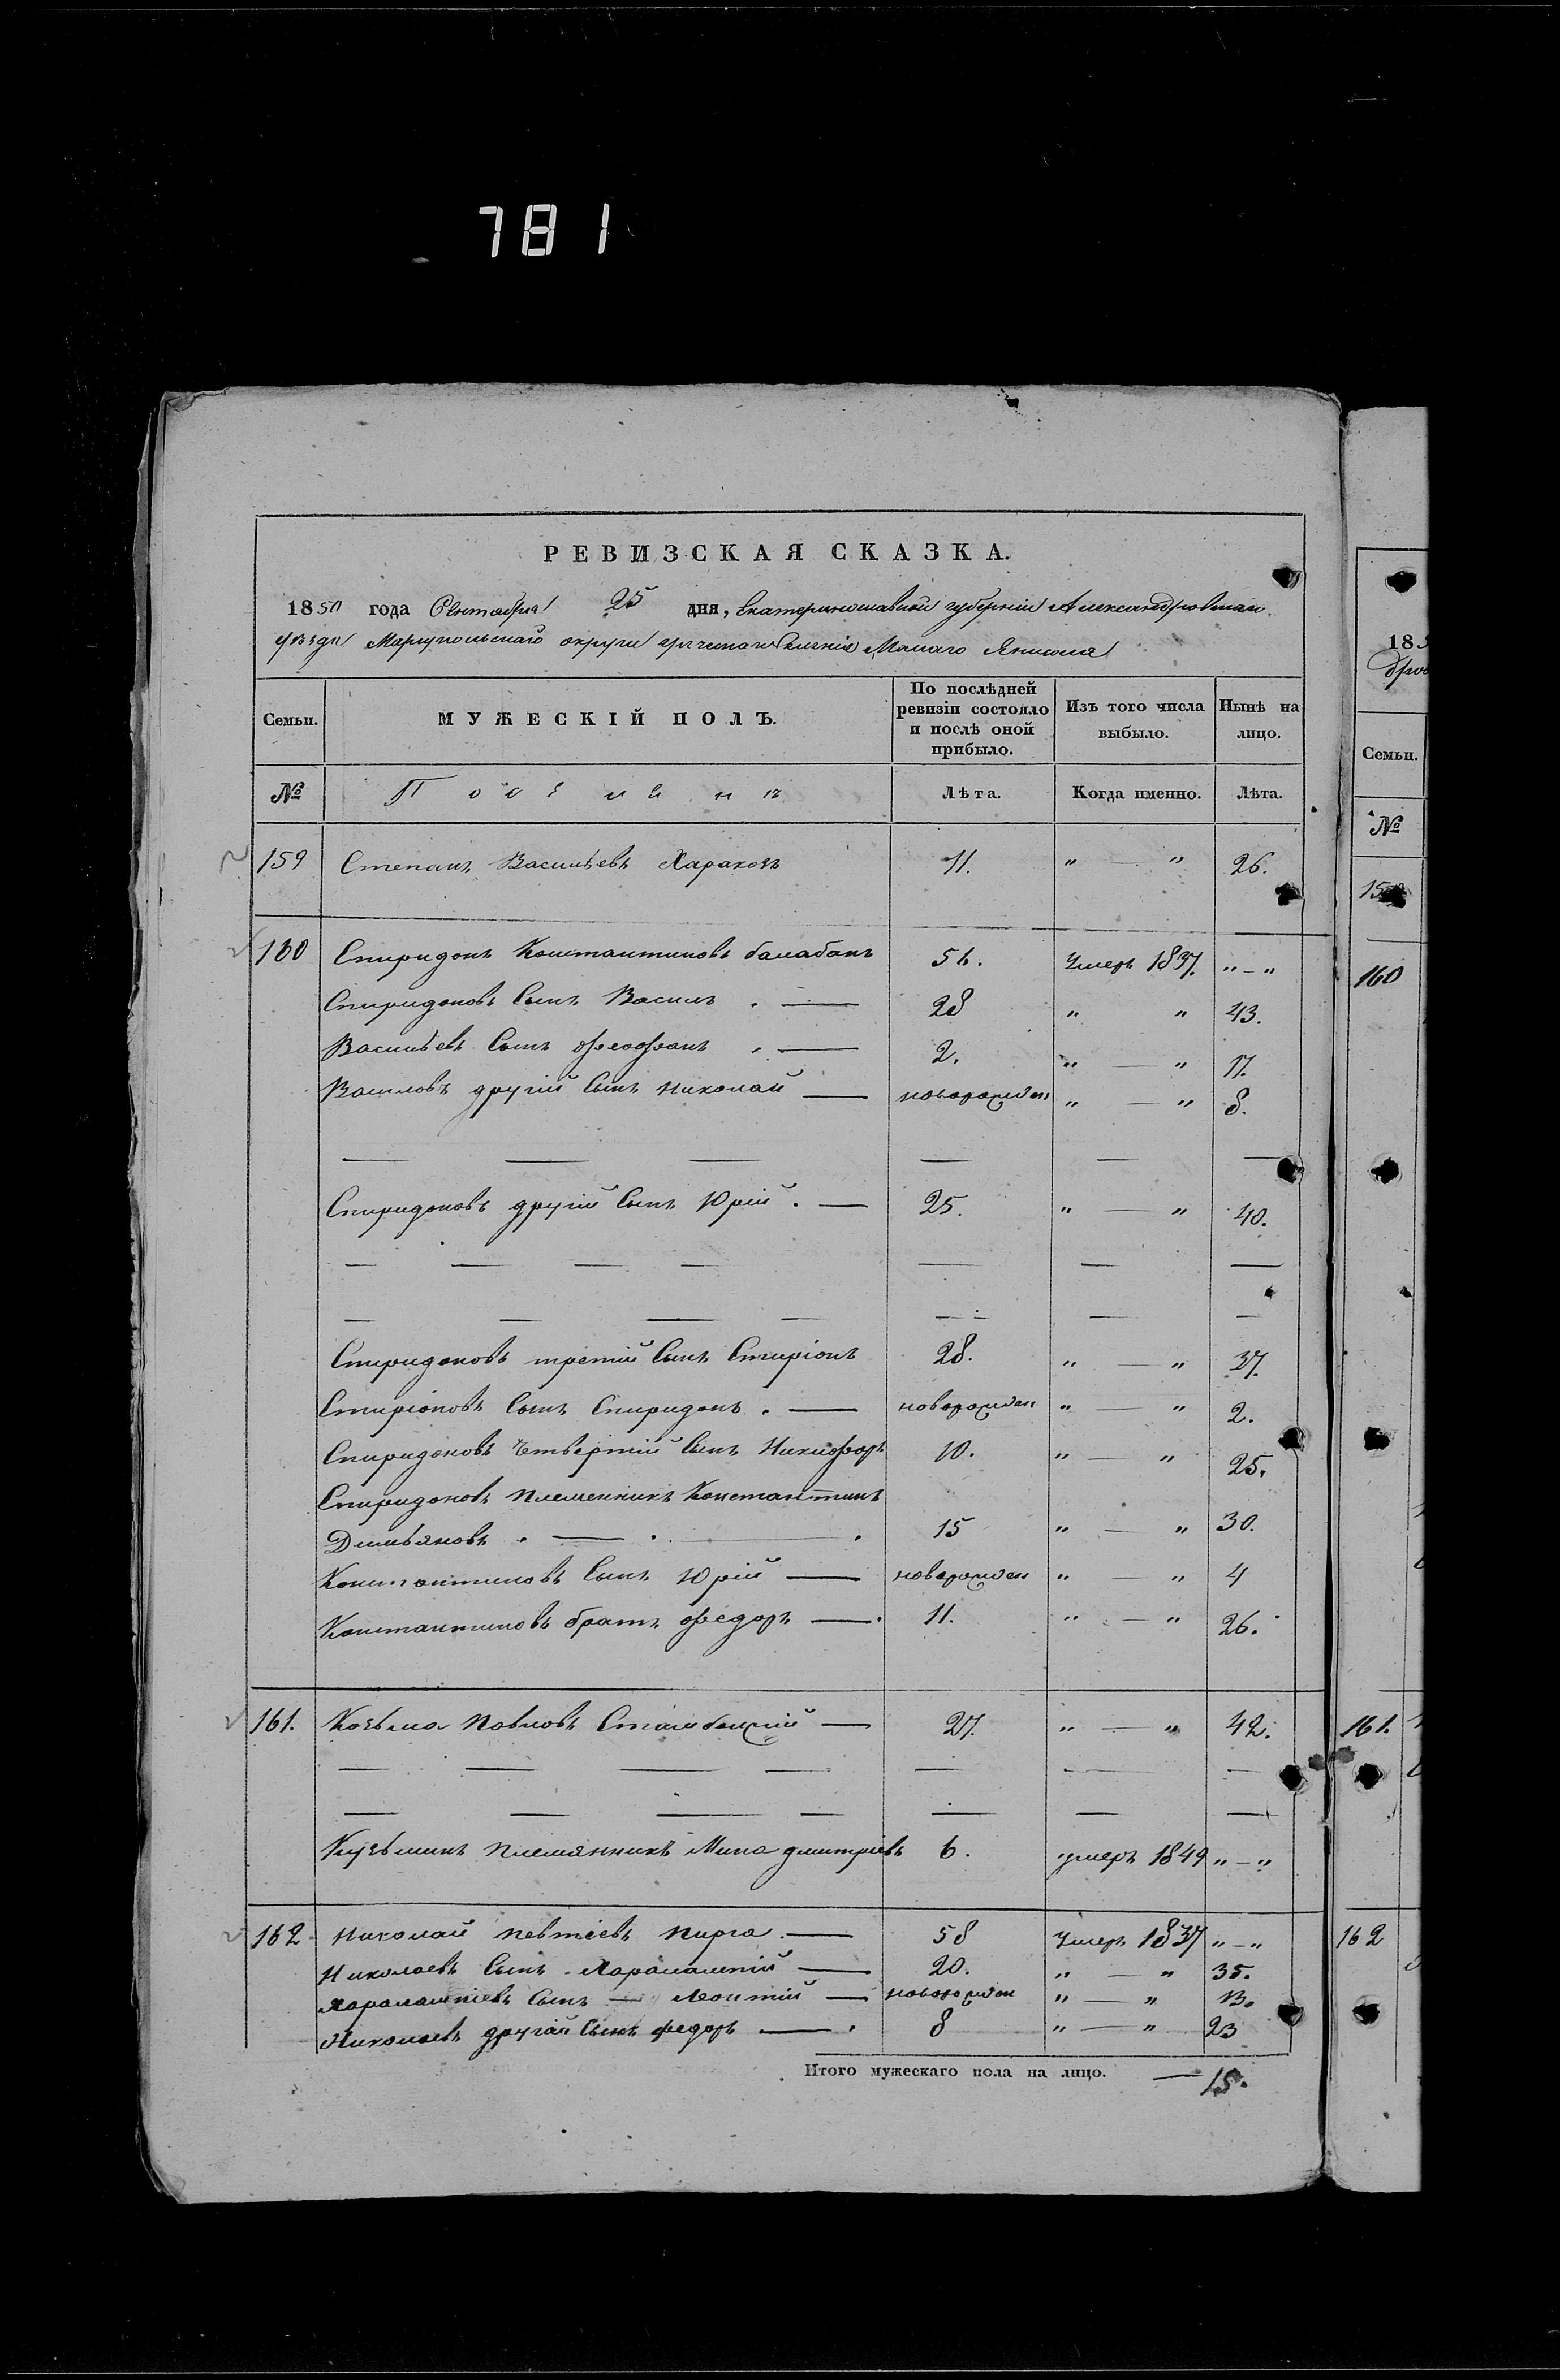 781
РЕВИЗСКАЯ СКАЗКА.
1850 года Сентября 25 дня, Екатеринославской губерніи Александровскаго
уѣзда Маріупольскаго округа греческаго селенія Малаго Янисоля
Семьи. МУЖЕСКІЙ ПОЛЪ. По послѣдней ревизіи состояло и послѣ оной прибыло. Изъ того числа выбыло. Нынѣ на лицо.
№ Поселянъ Лѣта. Когда именно. Лѣта.
159 Степанъ Васильевъ Харахозъ 11. " — " 26.
160 Спиридонъ Константиновъ балабанъ 56. Умеръ 1837. " — "
Спиридоновъ Сынъ Василъ . — 28 " " 43.
Васильевъ Сынъ Феофанъ . — 2. " — " 17.
Василовъ другій Сынъ Николай — новорожден " — " 8.
— — — — — —
Спиридоновъ другій Сынъ Юрій . — 25. " — " 40.
— — — — — — —
— — — — — — —
Спиридоновъ третій Сынъ Спиріонъ 28. " — " 37.
Спиріоновъ Сынъ Спиридонъ . — новорожден " — " 2.
Спиридоновъ Четвертій Сынъ Никифоръ 10. " — " 25.
Спиридоновъ племенникъ Константинъ
Димьяновъ . — . — . 15 " — " 30.
Константиновъ Сынъ Юрій — новорожден " — " 4
Константиновъ братъ Федоръ — . 11. " — " 26.
161. Козьма Павловъ — 27. " — " 42.
— — — — — — —
— — — — — — —
Кузьминъ племянникъ Мина дмитріевъ 6. умеръ 1849 " — "
162 Николай Певтіевъ Пирга . — 58 Умеръ 1837 " — "
Николаевъ Сынъ Харалампій — 20. " — " 35.
Харалампіевъ Сынъ — Леонтій — новорожден " — " 13.
Николаевъ другій Сынъ федоръ — . 8 " — " 23
Итого мужескаго пола на лицо. — 15.
185
Семьи.
№
159
160
161.
162